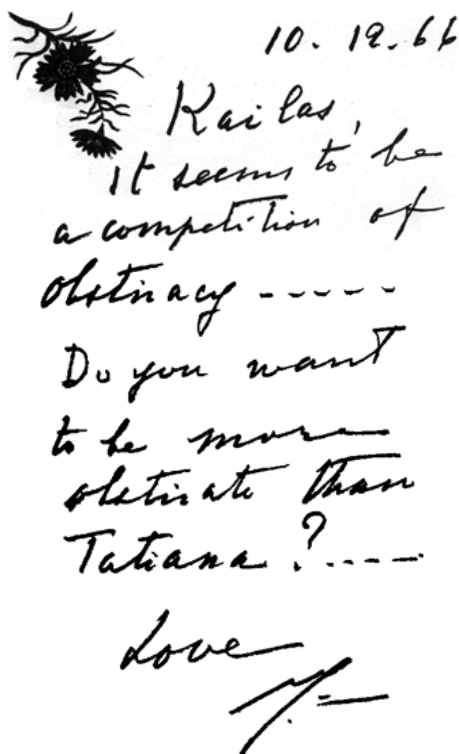 10. 12. 66
Kailas,
It seems to be
a competition of
obstinacy -----
Do you want
to be more
obstinate than
Tatiana?.----
Love
M.=